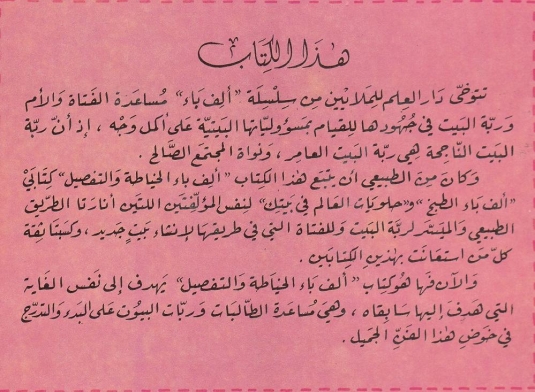 هذا الكتاب
تتوخّى دار العلم للملايين من سلسلة "ألف باء" مُساعدة الفتاة والأم
وربّة البيت في جُهُودها للقيام بمسؤوليّاتها البَيتيّة على أكمل وَجْه ، إذ أنّ ربّة
البَيت النّاجحة هِي ربّة البَيت العامِر، ونواة المجتمَع الصّالح .
وَكانَ مِن الطبيعي ان يتبَع هذا الكِتاب "ألِف باء الخياطة والتفصيل" كِتابَيْ
"ألف بَاء الطبخ" و"حلويات العَالم في بَيتِك" لنفس المؤلّفتَين اللتَين أنارَتا الطّريق
الطبيعي والميَسّر لربّة البَيت وَللفتاة التي في طريقها لإنشاء بَيتٍ جَديد ، وكسَبَتا ثِقة
كلّ مَن استعَانَت بهٰذين الكِتابَين .
وَالآن فَها هُو كِتاب "ألف بَاء الخيَاطة وَالتفصيل" يَهدِف إلى نَفس الغَاية
التي هَدَف إليها سَابِقاه ، وَهي مُسَاعدة الطّالبَات وَربّات البيُوت على البَدء وَالتدَرّج
في خَوضِ هٰذا الفَنّ الجَميل .